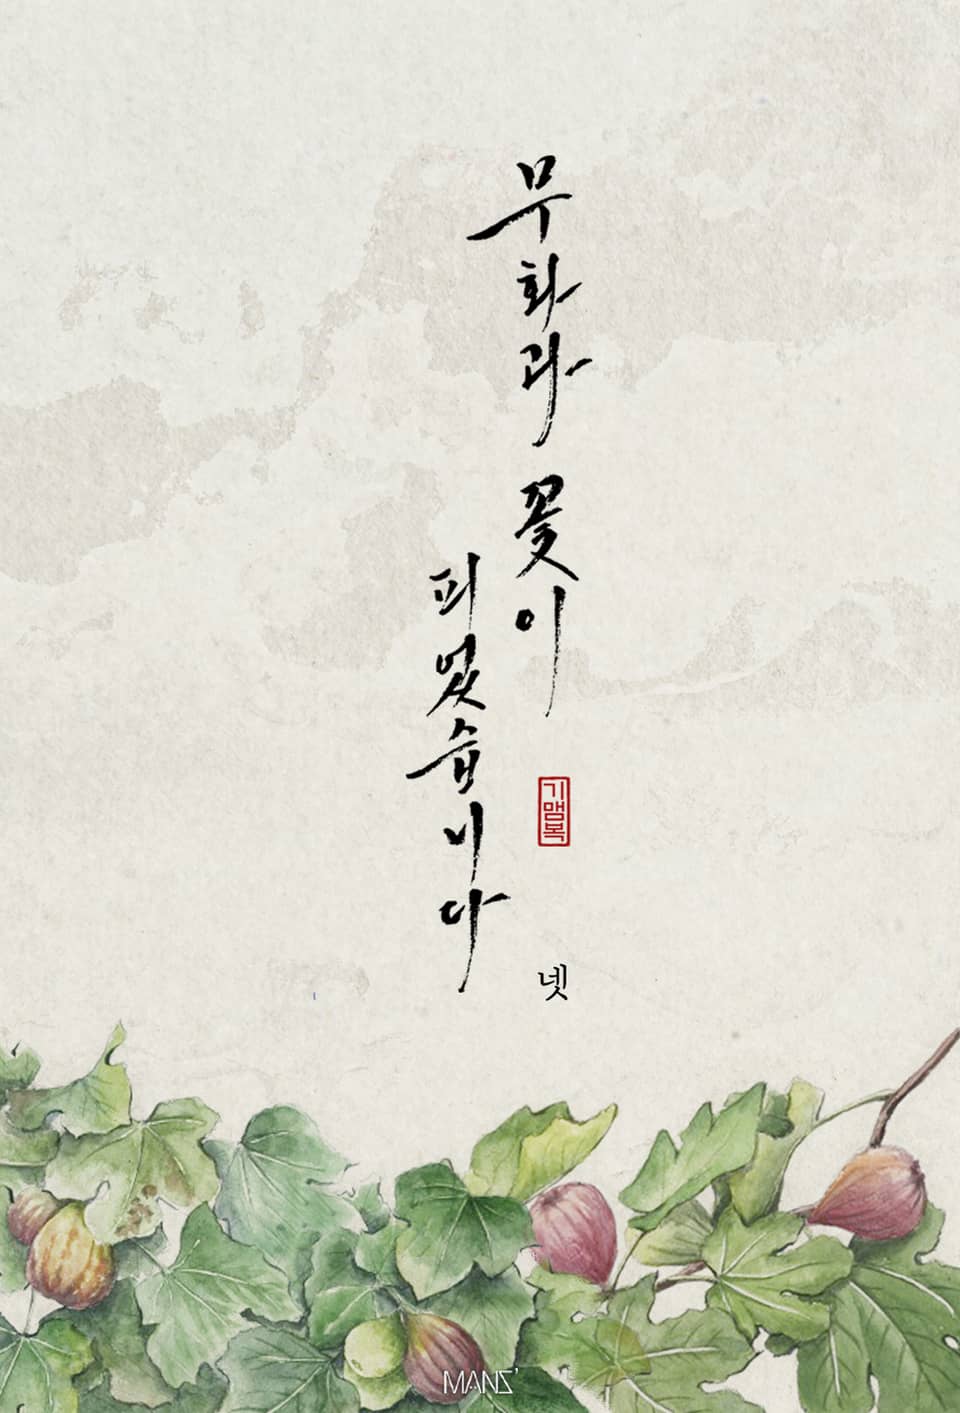 무화과 꽃이
피었습니다
기맴복
넷
MANS'